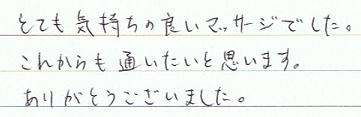 とても気持ちの良いマッサージでした。
これからも通いたいと思います。
ありがとうございました。